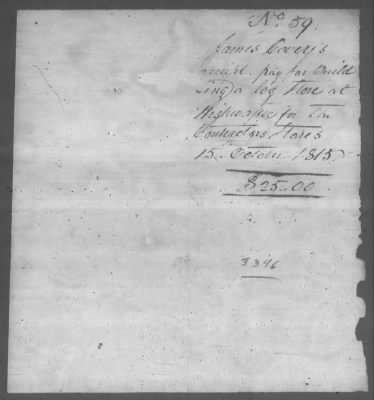 No. 59.
James Covey's
receipt. pay for Build
ing a log Store at
Highwassee for the
Contractors Stores
15th October 1815.
$25.00
3396